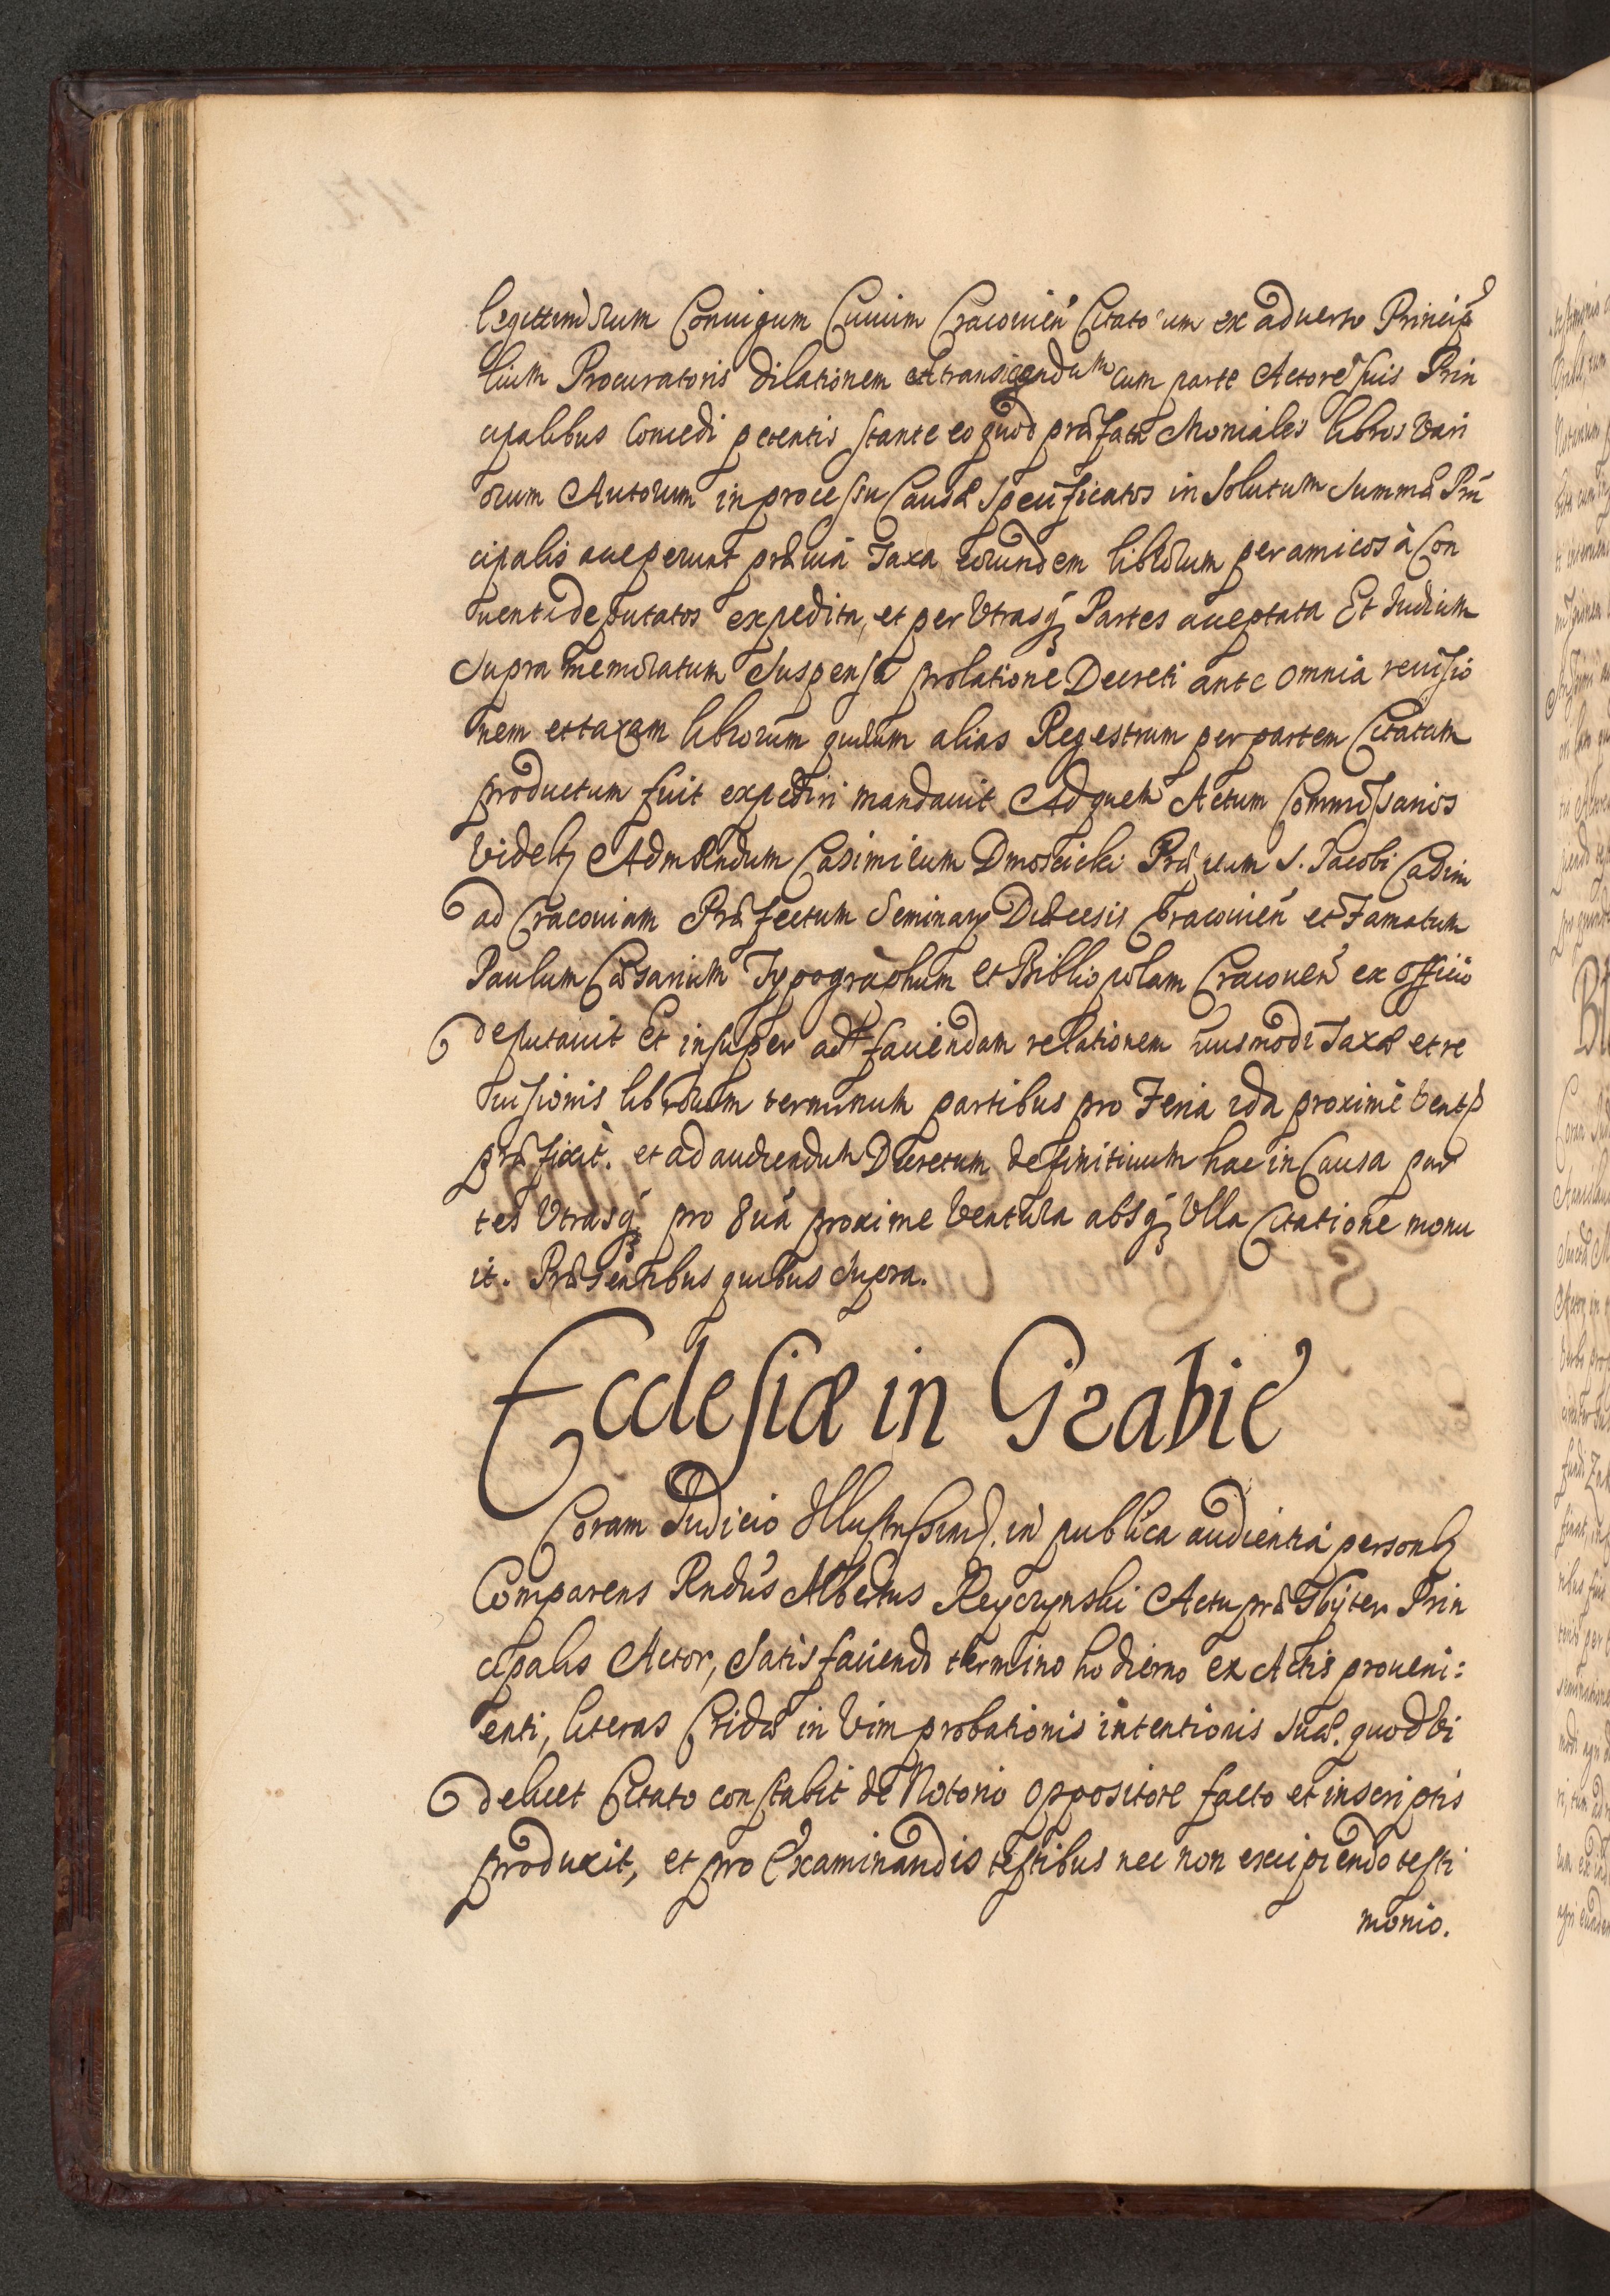 legittimorum Coniugum Ciuium Cracouień Citatorum ex aduerso Principa
lium Procuratoris dilationem ad transigendum cum parte Actorĕ suis Prin
cipalibus Concedi petentis stante eo quod præfatæ Moniales libros Vari
orum Autorum in processu Causæ Specificatos in Solutum Summæ Prin
cipalis acceperunt præuiá Taxa eorundem librorum per amicos à Con
uentu deputatos expedita, et per Vtrasq; Partes acceptata Et Iudicium
Supra memoratum Suspensa prolatione Decreti ante omnia reuisio
nem et taxam librorum quorum alias Regestrum per partem Citatam
productum fuit expediri mandauit Ad quem Actum Commissarios
Videlt; Admŏ Rndum Casimirum Dmoscicki Præpum S. Jacobi Casim
ad Cracouiam Præfectum Seminary Diæcesis Cracouień et Famatum
Paulum Cæsarium Typographum et Bibliopolam Cracouień ex officio
deputauit Et insuper ad faciendam relationem huiusmodi Taxæ et re
uisionis librorum terminum partibus pro Feria 2da proximè Vent
præfixit. et ad audiendum Decretum definitiuum hac in Causa par
tes Vtrasq; pro 8uá proxime Ventura absq; Vlla Citatione monu
it. Præsentibus quibus Supra.
Ecclesiæ in Grabie
Coram Iudicio Illustrissimi. in publica audientiá personlr
Comparens Rndus Albertus Reyczynski Actu præsbyter Prin
cipalis Actor, Satisfaciendo termino hodierno ex Actis proueni:
enti, literas Cridæ in Vim probationis intentionis Suæ. quod Vi
delicet Citato constabit de Notorio oppositore facto et inscriptis
produxit, et pro Examinandis testibus nec non excipiendo testi
monio.